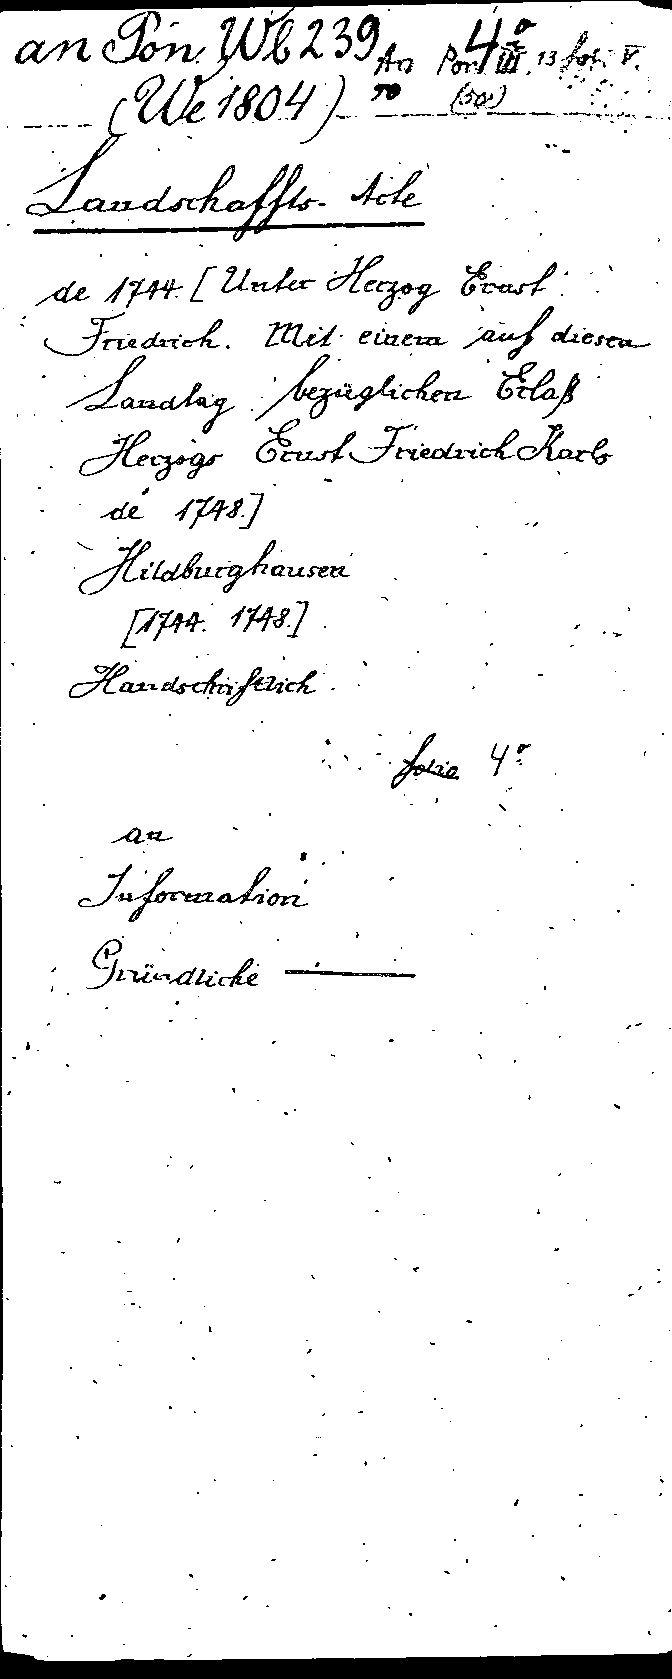 an Pon Wb 239 An Pon 4° III. 13 fol. V.
(We 1804) 70 (50)
Landschaffts-Acte
de 1744. [Unter Herzog Ernst
Friedrich. Mit einem auf diesen
Landtag bezüglichen Erlaß
Herzogs Ernst Friedrich Karls
de 1748.]
Hildburghausen
[1744. 1748.]
Handschriftlich
folio 4°
an
Information
Gründliche —